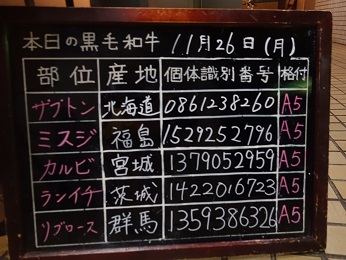 本日の黒毛和牛 11月26日(月)
部位 産地 個体識別番号 格付
ザブトン 北海道 0861238260 A5
ミスジ 福島 1529252796 A5
カルビ 宮城 1379052959 A5
ランイチ 茨城 1422016723 A5
リブロース 群馬 1359386326 A5